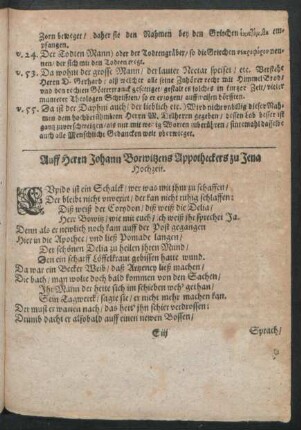 Zorn beweget / daher sie den Nahmen bey den Griechen empfangen.
v. 24. Der Todten Mann) oder der Todtengräber / so die Griechen nennen / der sich mit den Todten
v. 53. Da wohnt der grosse Mann / der lauter Nectar speiset / etc. Verstehet
Herrn D. Gerhard / als welcher alle seine Zuhörer recht mit Himmel-Brod /
und den rechten Göttertranck gesettiget / gestalt es solches in kurtzer Zeit /
munterter Theologen Schrifften / so er erzogen / auffweisen dörfften.
v. 55. Da ist der Daphnis auch / der lieblich etc. Wird nicht unbillig dieser Nahmen
dem hocherühmten Herrn M. gegeben / dessen Lob besser ist
gantz geschweigen / als nur mit wenig Worten überführen / sintemahl dasselbe
auch alle Menschliche Gedancken weit überwieget.
Auff Herrn Johann Borwitzens Appotheckers zu Jena
Hochzeit.
CUpido ist ein Schalck / wer was mit ihm zu schaffen /
Der bleibet nicht unvexirt / der kan nicht ruhig schlaffen:
Diß weiß der Corydon / diß weiß die Delia /
Herr Bowitz / wie mit euch / ich weiß ihr sprechet Ja.
Denn als er newlich noch kam auff der Post gegangen
Hier in die Apothec / und ließ Pomade langen /
Der schönen Delia zu heilen ihren Mund /
Den ein scharff Löffelkraut gebissen hatte wund.
Da war ein Becker Weib / daß Artzney ließ machen /
Die bath / man wolte doch bald kommen von den Sachen /
Ihr Mann der hette sich im schieben weh gethan /
Sein Tagwerck / sagte sie / er nicht mehr machen kan.
Der must er warten nach / das hett' ihn schier verdrossen;
Drumb dacht er alsobald auff einen newen Bossen /
Sprach /